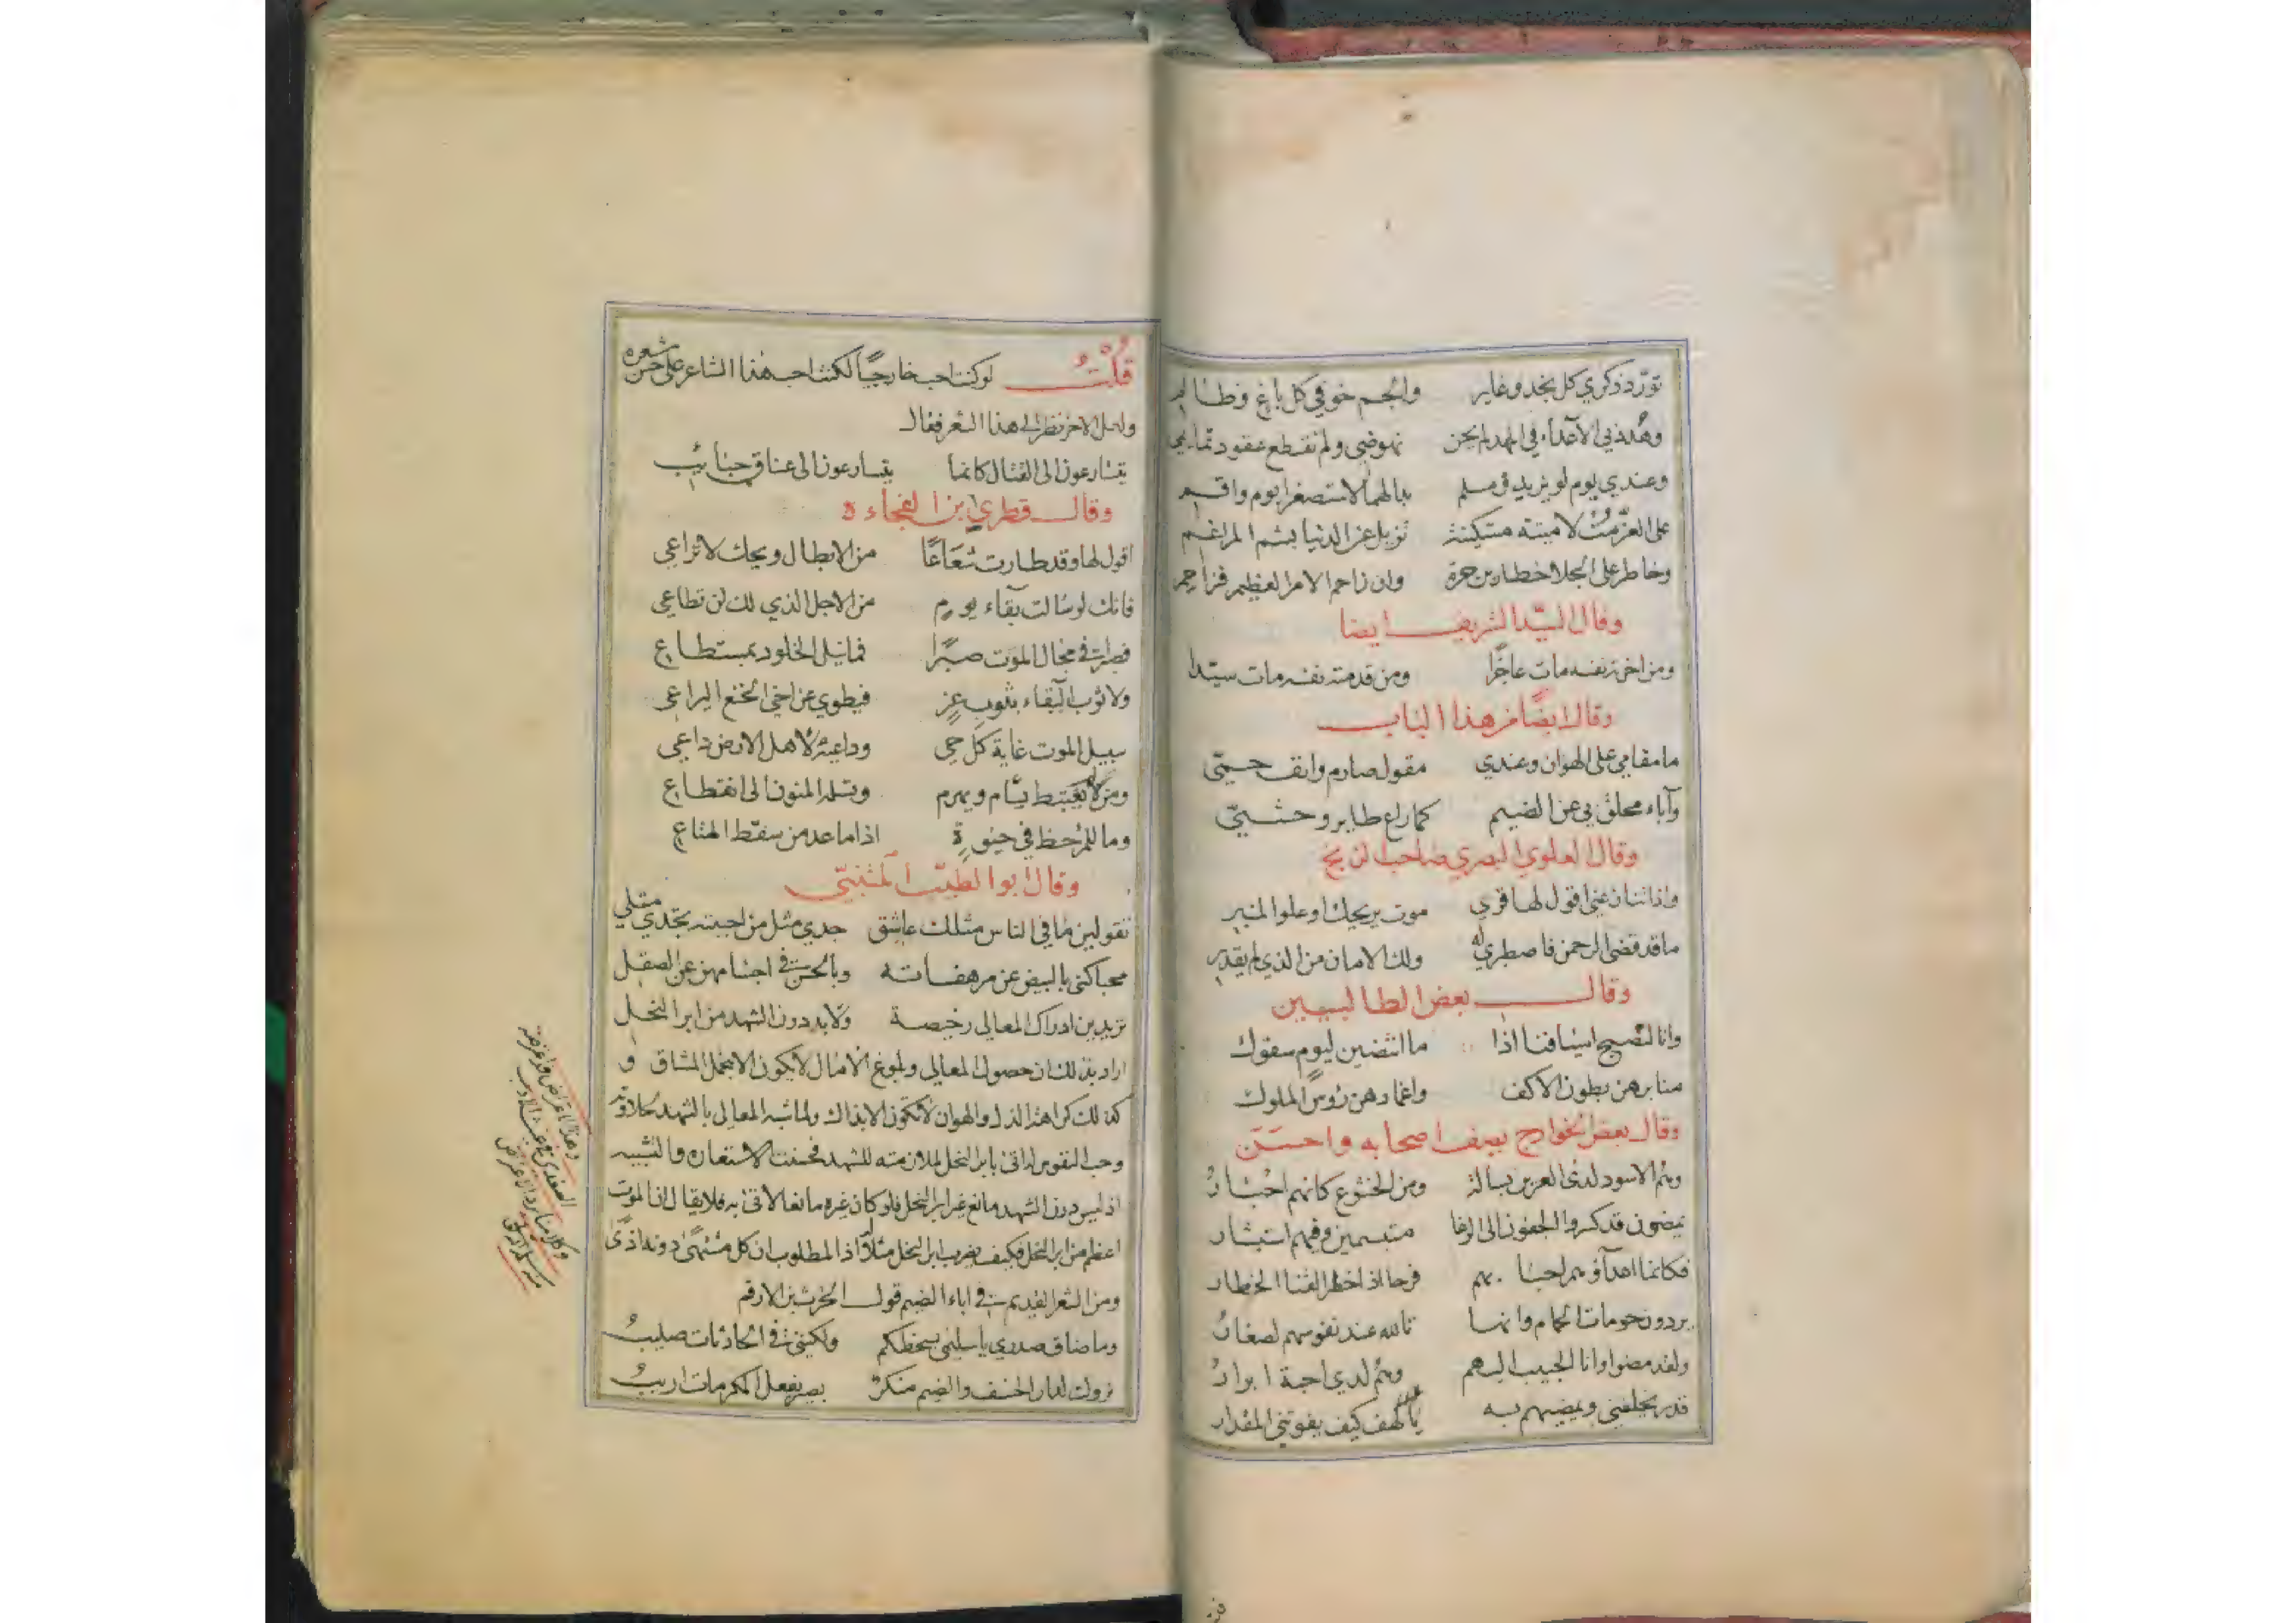 تورّد ذكري كل نجد وغاير والجم خوفي كل باغ وظالم
وهدني الاعداء في المهد لم يحن نهوضي ولم تقطع عقود تمايمي
وعندي يوم لو يزيد ومسلم بدالهما لاستصغرا يوم واقم
على العز مت لا ميتة مستكينة تزيل عن الدنيا بشم المراغم
وخاطر على الجلا خطار بن حرة وان زاحم الامر العظيم فزاحم
وقال السيّد الشريف ايضا
ومن اخرته نفسه مات عاجزا ومن قدمته نفسه مات سيّدا
وقال ايضًا من هذا الباب
ما مقامي على الهوان وعندي مقول صارم وانف حميّ
وآباء محلق بي عن الضيم كما راع طاير وحشيّ
وقال العلوي البصري صاحب الزنج
واذا تنازعني اقول لها قري موت يريحك او علو المنبر
ما قد قضى الرحمن فاصطبري له ولك الامان من الذي لم يقدر
وقال بعض الطالبيين
وانا لتصبح اسيافنا اذا ما انتضين ليوم سفوك
منابرهن بطون الاكف واغمادهن رؤس الملوك
وقال بعض الخوارج يصف اصحابه واحسَن
وهم الاسود لدى العرين بسالة ومن الخشوع كانهم احبار
يمضون قد كسروا الجفون الى الوغا متبسمين وفيهم استبشار
فكانما اعدآؤهم احبابهم فرحا اذا خطر القنا الخطار
يردون حومات الحمام وانها تالله عند نفوسهم لصغار
ولقد مضوا وانا الحبيب اليهم وهم لدي احبة ابرار
قدر يخلفني ويمضيهم به يا لهف كيف يفوتني المقدار
قُلْتُ لو كنت احب خارجيًا لكنت احب هذا الشاعر على حسن شعره
ولعل الاخر نظر الى هذا الشعر فقال
يتسارعون الى القتال كانما يتسارعون الى عناق حبائب
وقال قطري ابن الفجاءة
اقول لها وقد طارت شعَاعًا من الابطال ويحك لا تراعي
فانك لو سالت بقاء يوم من الاجل الذي لك لن تطاعي
فصبرا في مجال الموت صبرًا فما نيل الخلود بمستطاع
ولا ثوب البقاء بثوب عز فيطوي عن اخي الخنع اليراعي
سبيل الموت غاية كل حي وداعيه لاهل الارض داعي
ومن لا يعتبط يسام ويهرم وتسلمه المنون الى انقطاع
وما للمرء حظ في حيوة اذا ما عد من سقط المتاع
وقال ابو الطيّب المتنبيّ
تقولين ما في الناس مثلك عاشق جدي مثل من احببته تجدي مثلي
محبا كنى بالبيض عن مرهفاته وبالحسن في اجسامهن عن الصقل
تريدين ادراك المعالي رخيصة ولا بد دون الشهد من ابر النحل
اراد بذلك ان حصول المعالي وبلوغ الامال لا يكون الا بتحمل المشاق و
كذلك كراهة الذل والهوان لا تكون الا بذاك ولما شبه المعالي بالشهد لحلاوته
وحب النفوس له اتى بابر النحل لملازمته للشهد فحسنت الاستعارة والتشبيه
اذ ليس دون الشهد مانع غير ابر النحل فلو كان غيره مانعا لاتى به فلا يقال ان الموت
اعظم من ابر النحل فكيف يضرب ابر النحل مثلا اذا المطلوب ان كل مشتهى دونه اذى
ومن الشعر القديم في اباء الضيم قول الحرث بن الارقم
وما ضاق صدري يا سليمى بسخطكم ولكنني في الحادثات صليب
نزولت لدار الخسف والضيم منكر بصير بفعل المكرمات اريب